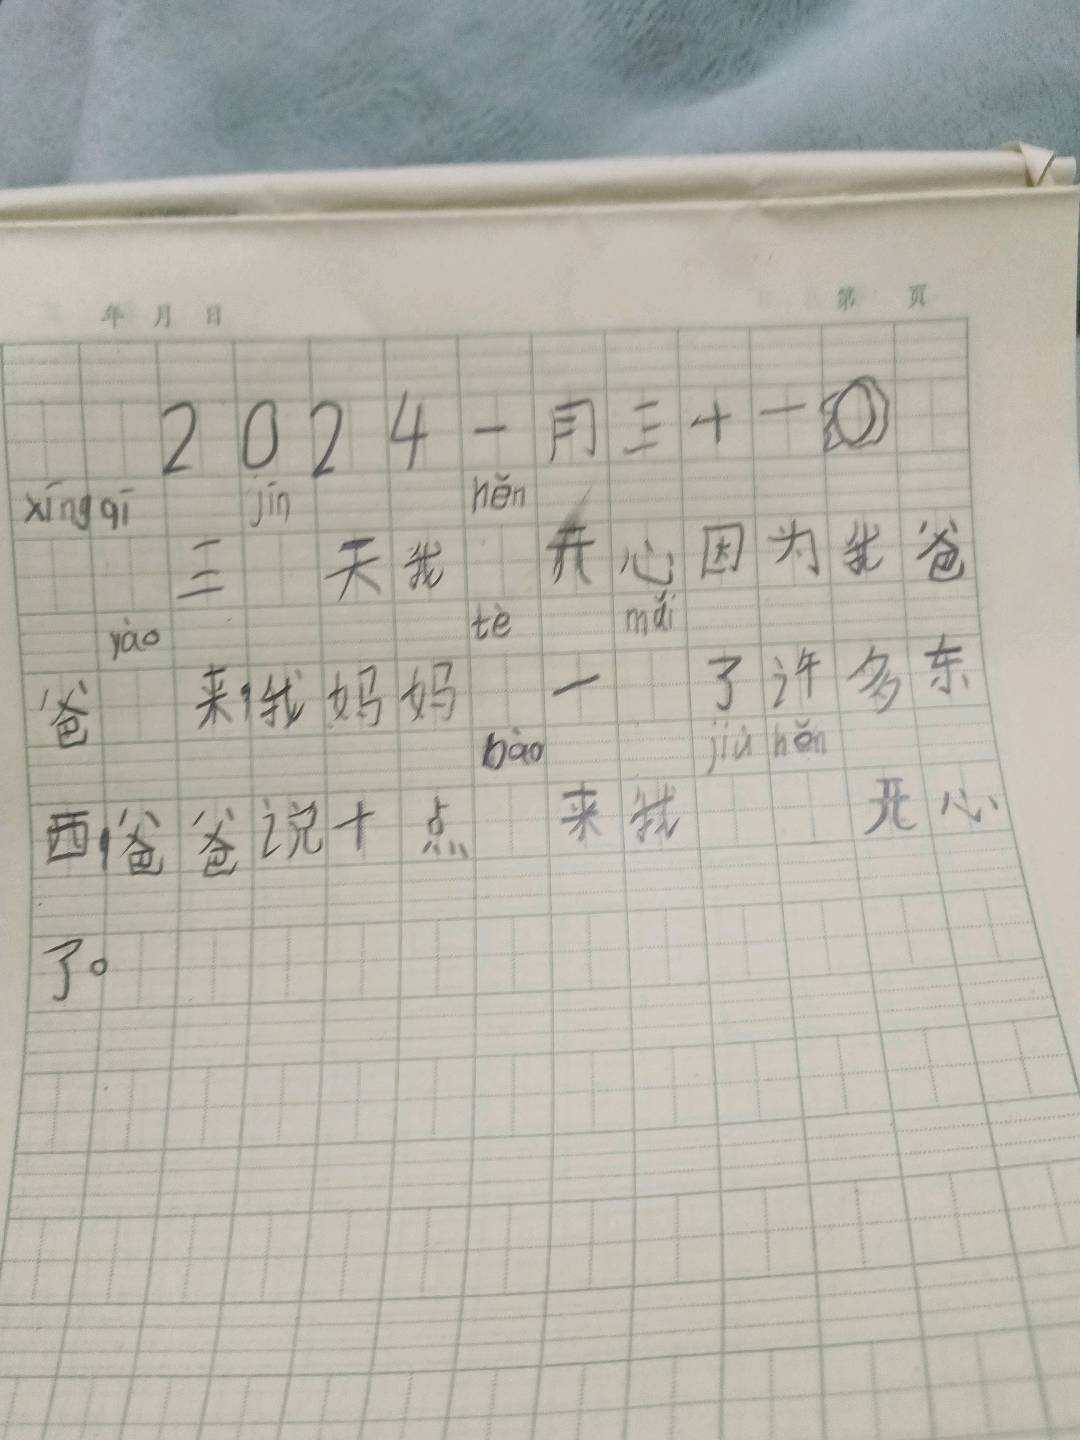 年 月 日 第 页
2024一月三十一
xīngqī三jīn天我hěn开心因为我爸
爸yào来,我妈妈tè一mǎi了许多东
西,爸爸说十点bào来我jiùhěn开心
了。